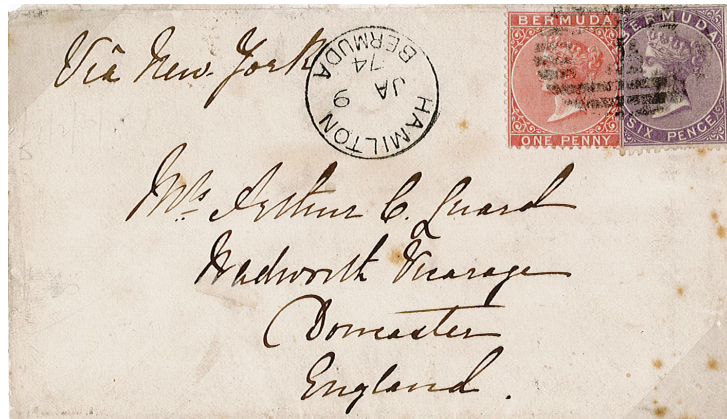 Via New York
HAMILTON
9
JA
74
BERMUDA
BERMUDA
ONE PENNY
BERMUDA
SIX PENCE
Mrs Arthur C. Guard
Wadworth Vicarage
Doncaster
England.